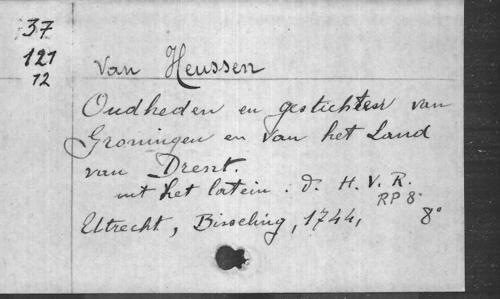 37
121
12
Van Heussen
Oudheden en gestichten van
Groningen en van het Land
van Drent.
uit het latein : d. H. V. R.
RP 8°
Utrecht, Bisseling, 1744, 8°